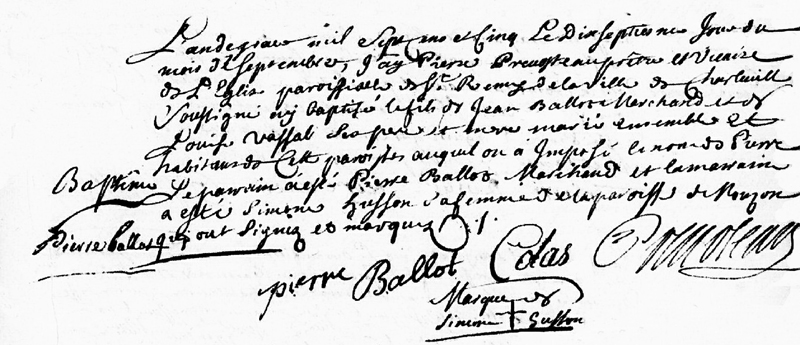 L'an de grace mil Sept cens et Cinq Le dixseptiesme Jour du
mois de Septembre, J'ay Pierre prebtre et Vicaire
de L'Eglise paroissialle de St. Remy de la ville de Charleville
Soussigné ay baptisé le fils de Jean Ballot Marchand et de
Louise Vassal Ses pere et mere mariés ensemble et
habitans de Cette paroisse auquel on a Imposé le nom de Pierre
Baptême Le parrain a esté Pierre Ballot Marchand et la marraine
a esté Simone Husson Sa femme de la paroisse de Mouzon
Pierre Ballot qui ont Signez et marquez
pierre Ballot Colas
Marque de
Simone Husson